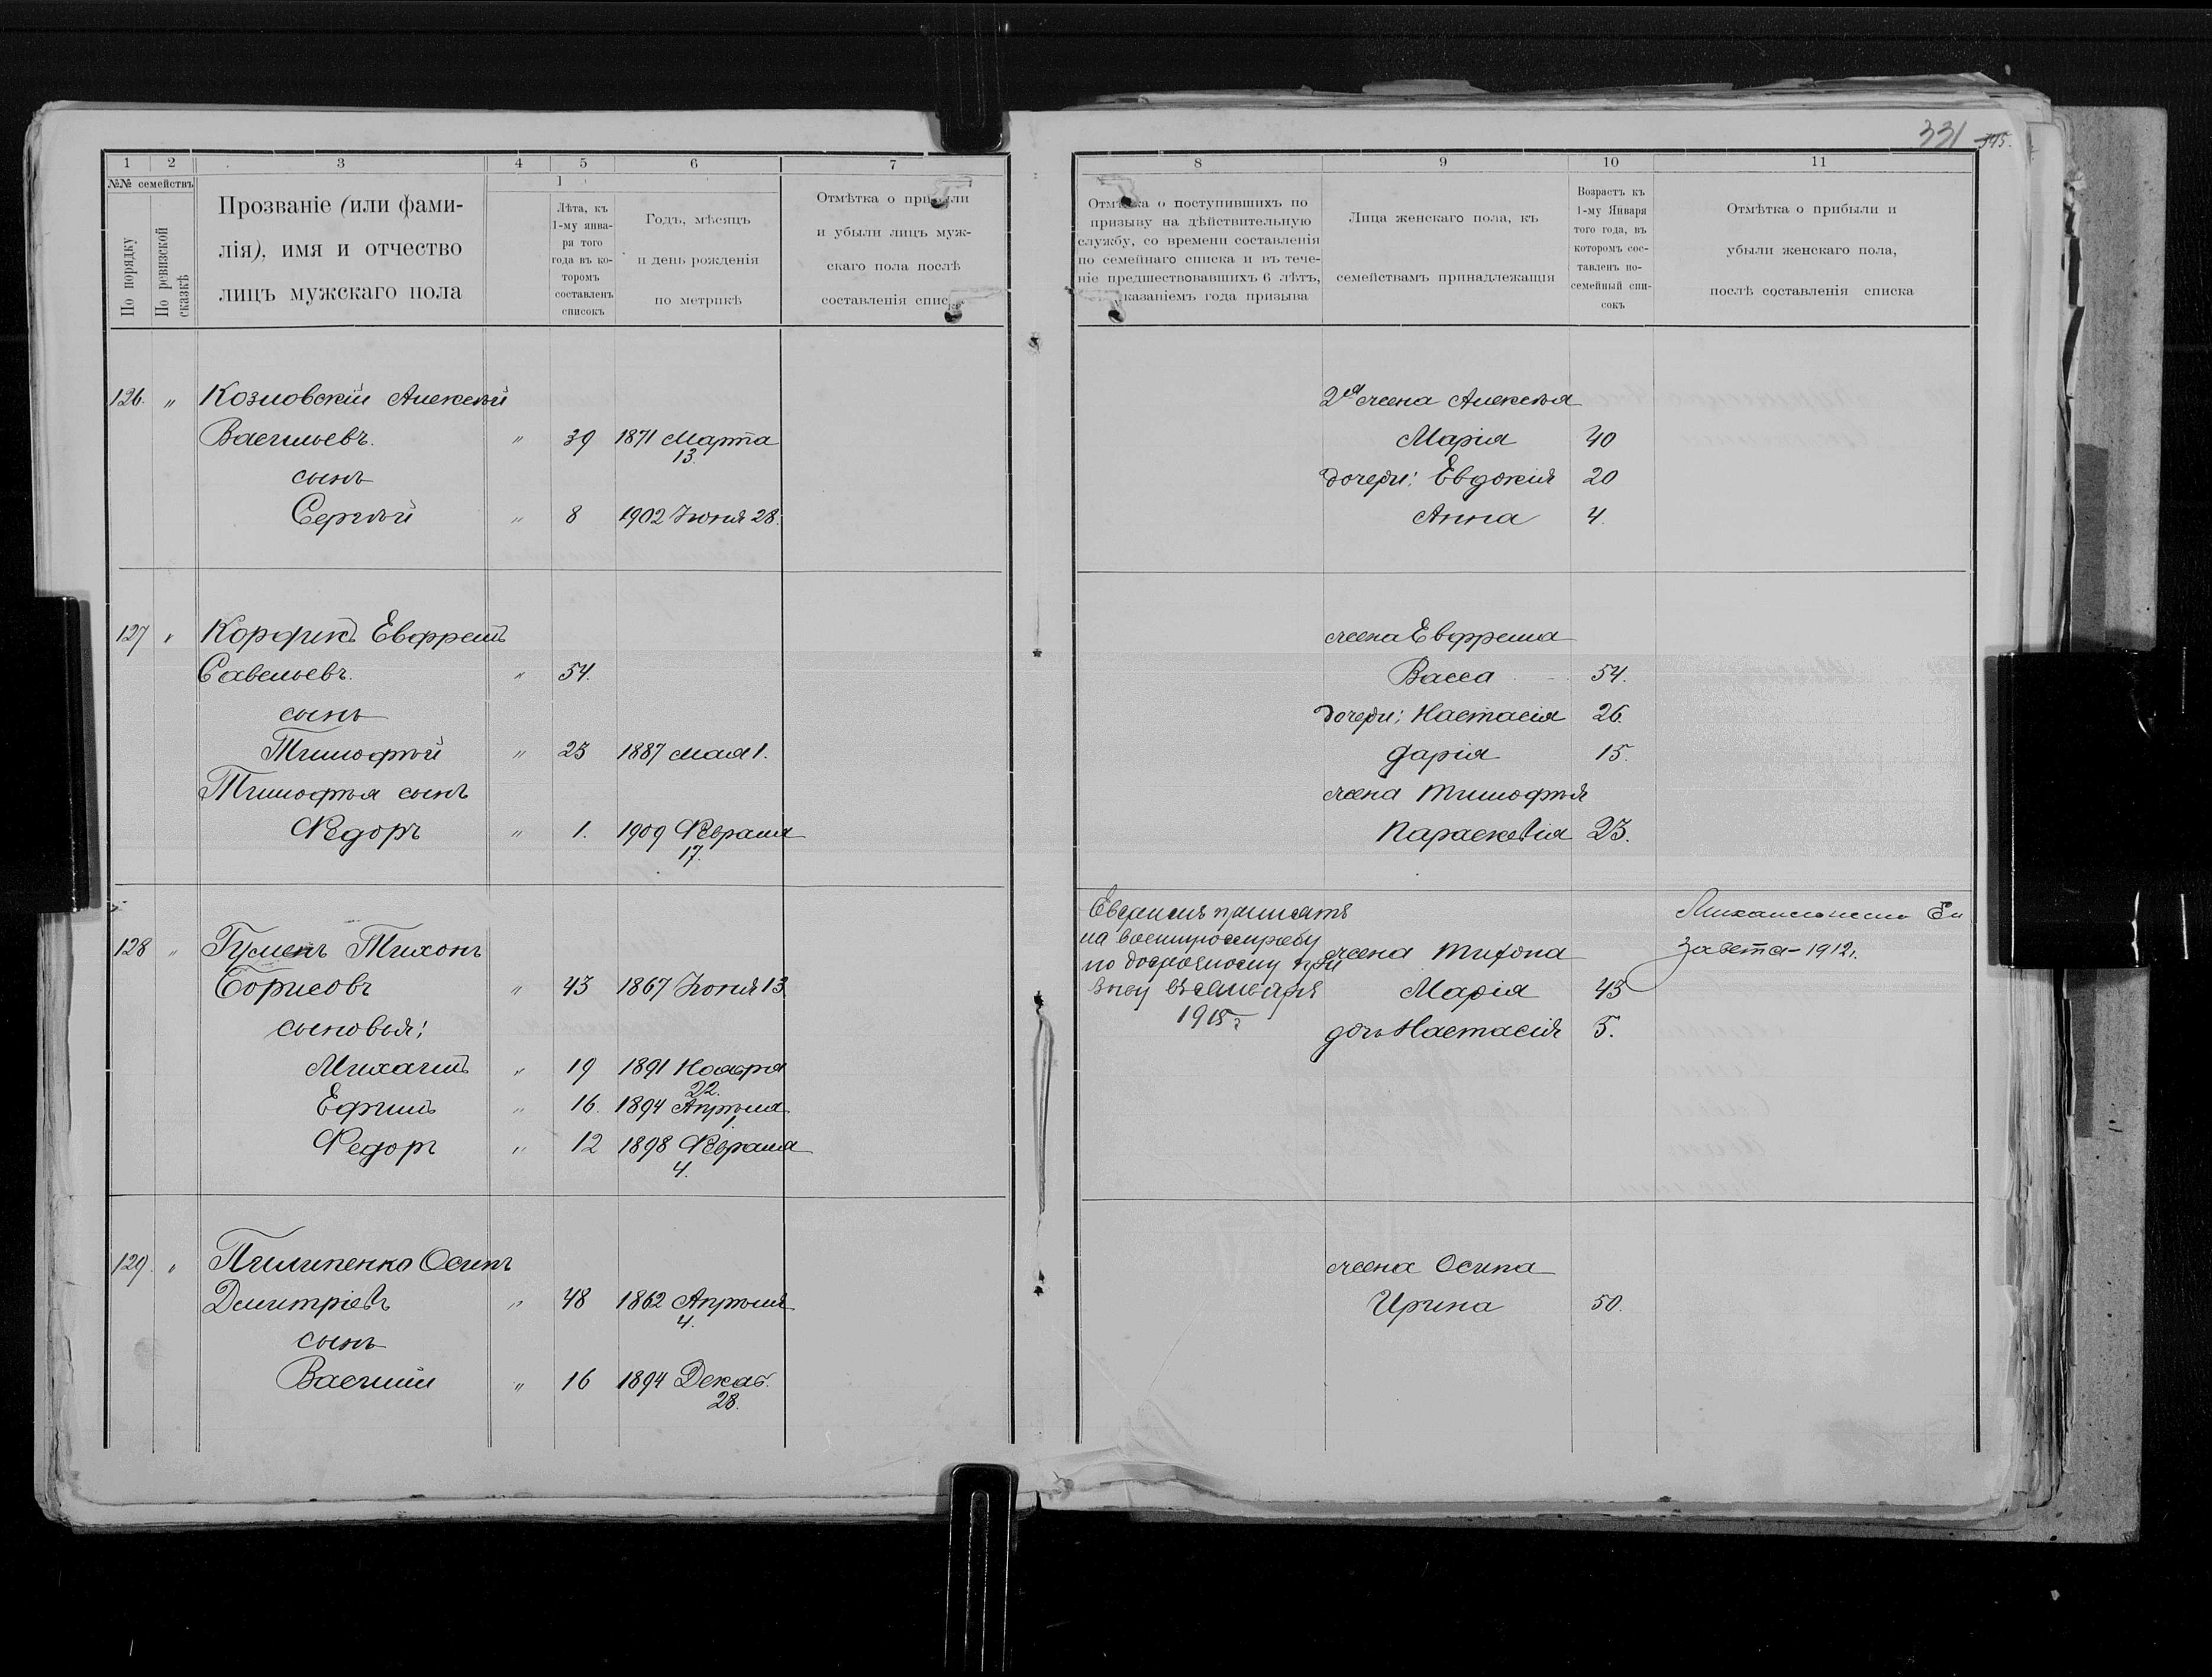 331 345.
1 2 3 4 5 6 7
№№ семействъ
По порядку
По ревизской сказкѣ
Прозваніе (или фами-
лія), имя и отчество
лицъ мужскаго пола
1
Лѣта, къ
1-му янва-
ря того
года въ ко-
торомъ
составленъ
списокъ
Годъ, мѣсяцъ
и день рожденія
по метрикѣ
Отмѣтка о прибыли
и убыли лицъ муж-
скаго пола послѣ
составленія списка
126. " Козловскій Алексѣй
Васильевъ. " 39 1871 Марта
13.
сынъ
Сергѣй " 8 1902 Іюня 28.
127 " Корфикъ Евфремъ
Савельевъ. " 54.
сынъ
Тимофѣй " 23 1887 мая 1.
Тимофѣя сынъ
Ѳедоръ " 1. 1909 Февраля
17.
128 " Гуменъ Тихонъ
Борисовъ " 43 1867 Іюня 13
сыновья:
Михаилъ " 19 1891 Ноября
22.
Ефимъ " 16. 1894 Апрѣля
1.
Ѳедоръ " 12 1898 Февраля
4.
129. " Пилипенко Осипъ
Дмитріевъ " 48 1862 Апрѣля
4.
сынъ
Василій " 16 1894 Декаб.
28.
8 9 10 11
Отмѣтка о поступившихъ по
призыву на дѣйствительную
службу, со времени составленія
по семейнаго списка и въ тече-
ніе предшествовавшихъ 6 лѣтъ,
указаніемъ года призыва
Лица женскаго пола, къ
семействамъ принадлежащія
Возрастъ къ
1-му Января
того года, въ
которомъ сос-
тавленъ по-
семейный спи-
сокъ
Отмѣтка о прибыли и
убыли женскаго пола,
послѣ составленія списка
2я жена Алексѣя
Марія 40
дочери: Евдокія 20
Анна 4.
жена Евфрема
Васса 54.
дочери: Настасія 26.
Дарія 15.
жена Тимофѣя
Параскевія 23.
принятъ
на военную службу
по досрочному при
зыву въ
1915 г
жена Тихона
Марія 43
дочь Настасія 5.
Ели
завета - 1912 г.
жена Осипа
Ирина 50.